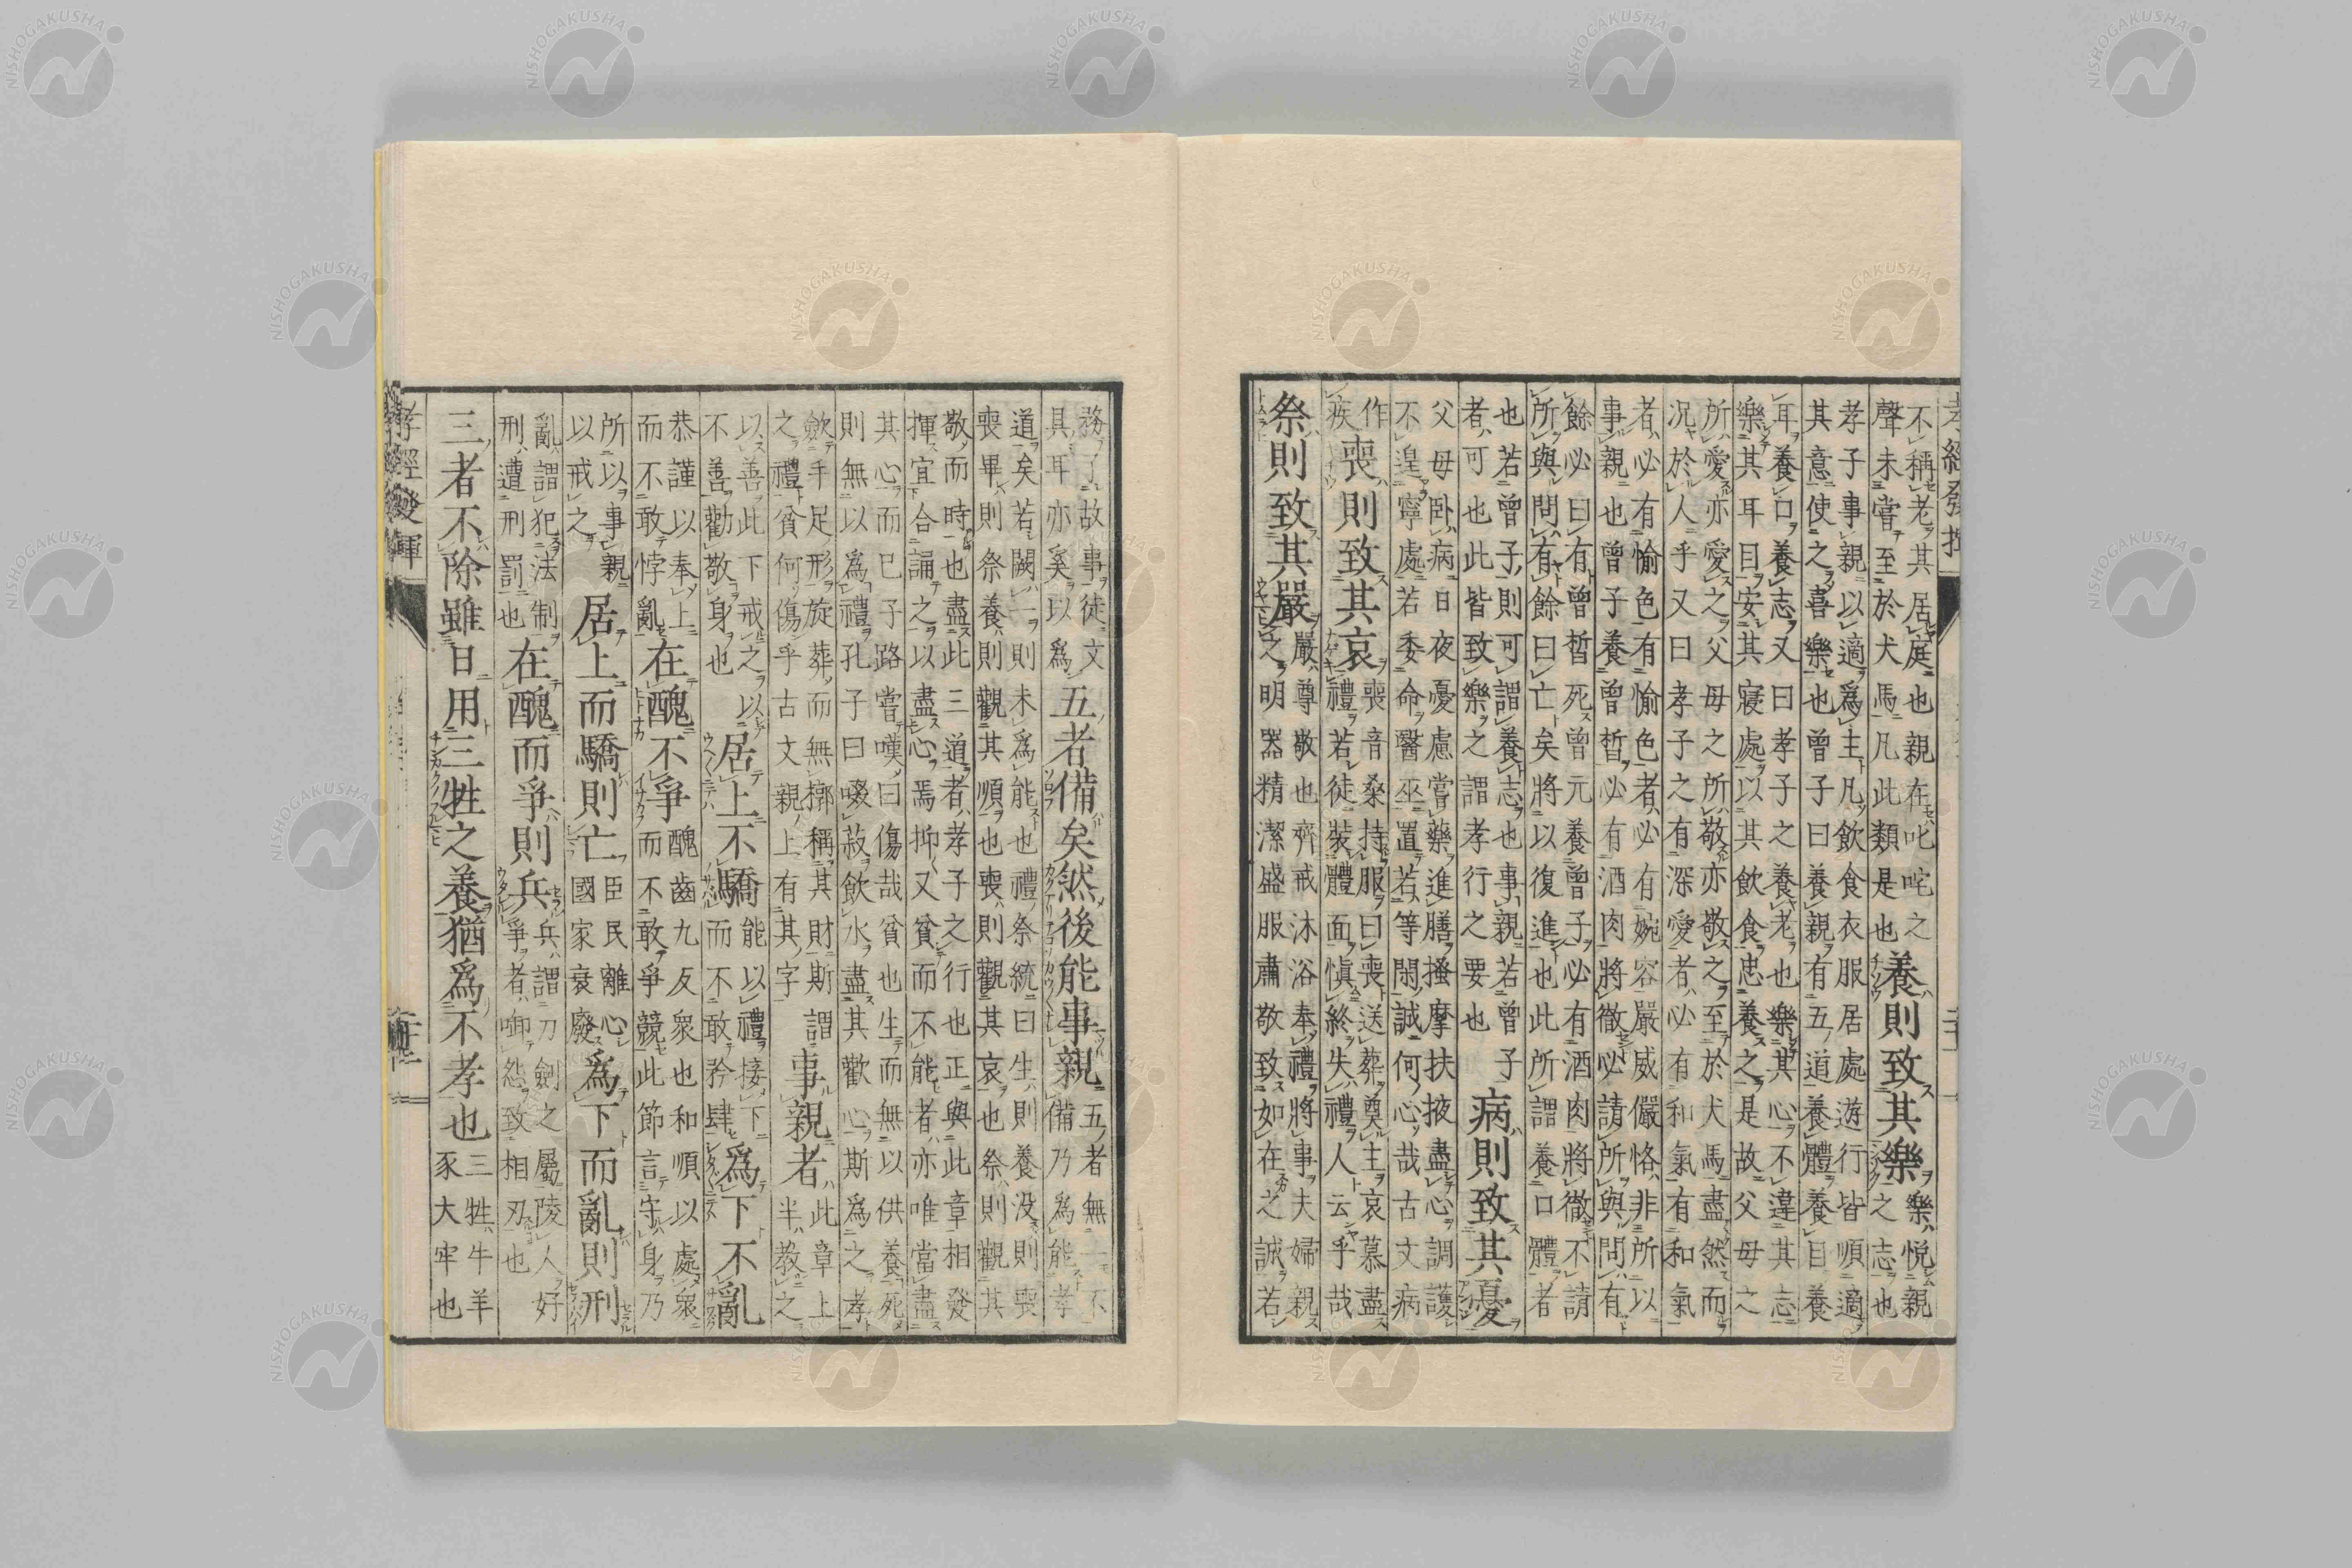 孝經發揮
不稱老其居庭也親在叱咤之
聲未嘗至於犬馬凡此類是也
養則致其樂
樂悦親
之志也
孝子事親以適爲主凡飲食衣服居處遊行皆順適
其意使之喜樂也曾子曰養親有五道養體養目養
耳養口養志又曰孝子之養老也樂其心不違其志
樂其耳目安其寢處以其飲食忠養之是故父母之
所愛亦愛之父母之所敬亦敬之至於犬馬盡然而
况於人乎又曰孝子之有深愛者必有和氣有和氣
者必有愉色有愉色者必有婉容嚴威儼恪非所以
事親也曾子養曾晳必有酒肉將徹必請所與問有
餘必曰有曾晳死曾元養曾子必有酒肉將徹不請
所與問有餘曰亡矣將以復進也此所謂養口體者
也若曾子則可謂養志也事親若曾子
者可也此皆致樂之謂孝行之要也
病則致其憂
父母卧病日夜憂慮嘗藥進膳搔摩扶掖盡心調護
不遑寧處若委命醫巫置若等閑誠何心哉古文病
作
疾
喪則致其哀
喪音桑持服曰喪送葬奠主哀慕盡
禮若徒裝體面愼終失禮人云乎哉
祭則致其嚴
嚴尊敬也齊戒沐浴奉禮將事夫婦親
之明器精潔盛服肅敬致如在之誠若
務了故事徒文
具耳亦奚以爲
五者備矣然後能事親
五者無一不
備乃爲能孝
道矣若闕一則未爲能也禮祭統曰生則養没則喪
喪畢則祭養則觀其順也喪則觀其哀也祭則觀其
敬而時也盡此三道者孝子之行也正與此章相發
揮宜合誦之以盡心焉抑又貧而不能者亦唯當盡
其心而已子路嘗嘆曰傷哉貧也生而無以供養死
則無以爲禮孔子曰啜菽飲水盡其歡心斯爲之孝
歛手足形旋葬而無槨稱其財斯謂
之禮貧何傷乎古文親上有其字
事親者
此章上
半教之
以善此下戒之以
不善勸敬身也
居上不驕
能以禮接下
而不敢矜肆
爲下不亂
恭謹以奉上
而不敢悖亂
在醜不爭
醜齒九反衆也和順以處衆
而不敢爭競此節言守身乃
所以事親
以戒之
居上而驕則亡
臣民離心
國家衰廢
爲下而亂則刑
亂謂犯法制
刑遭刑罰也
在醜而爭則兵
兵謂刀劍之屬陵人好
爭者啣怨致相刃也
三者不除雖日用三牲之養猶爲不孝也
三牲牛羊
豕大牢也
孝經發揮